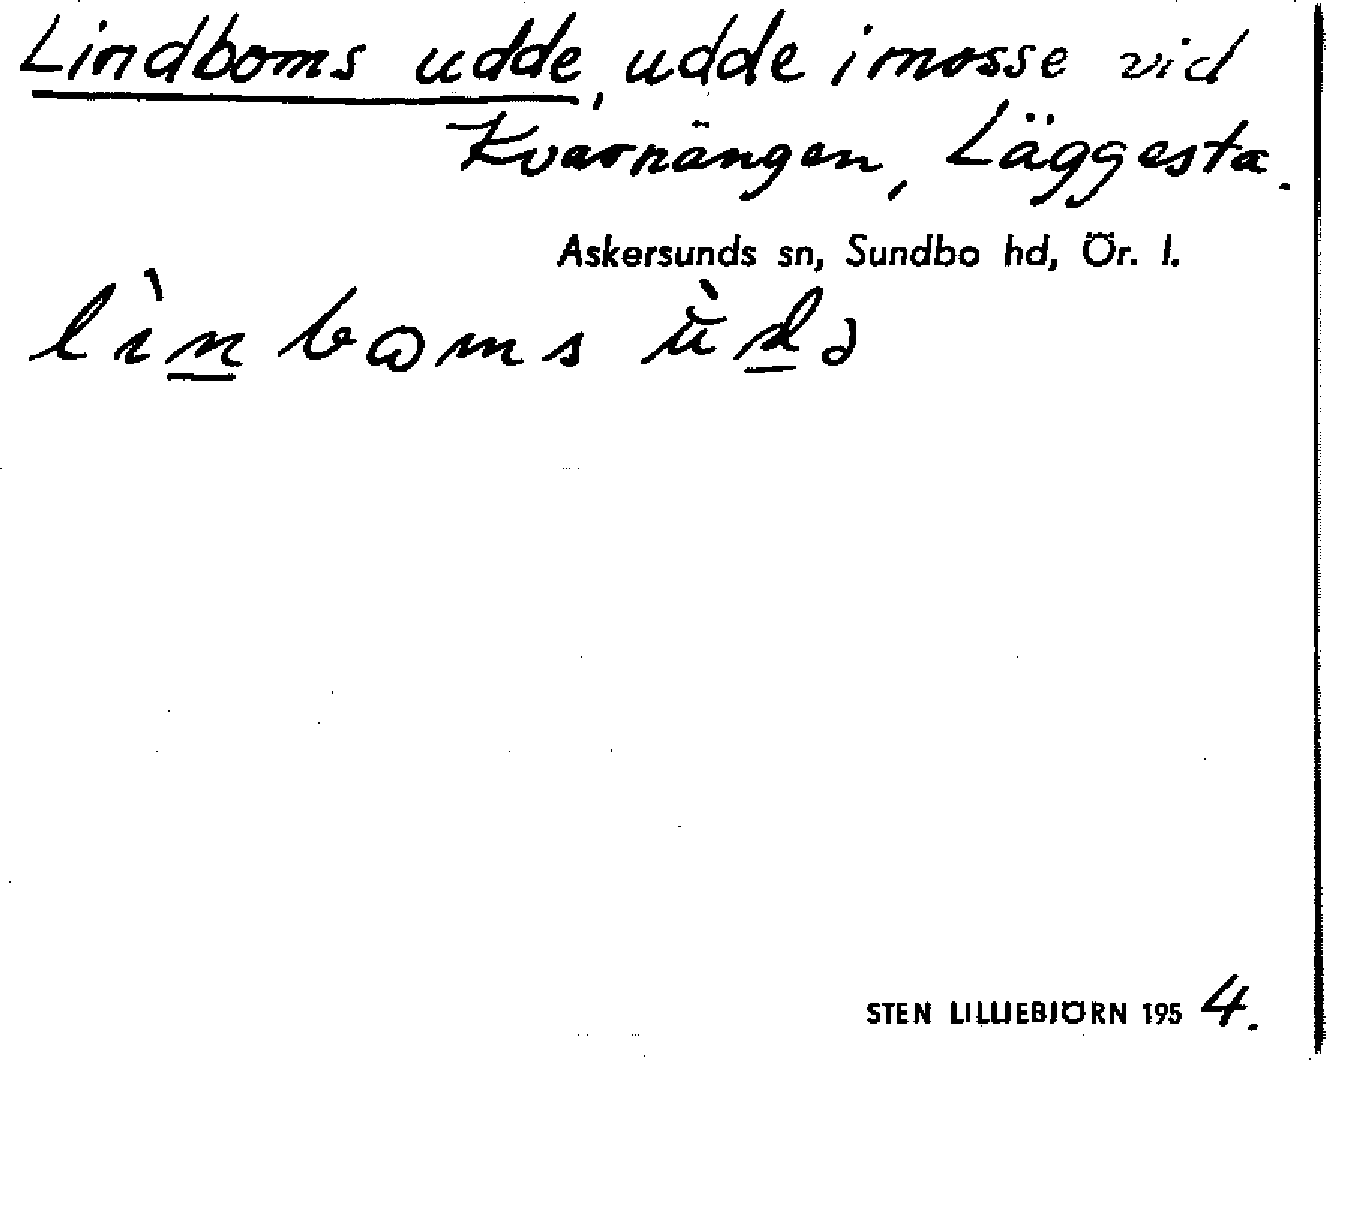 Lindboms udde, udde i mosse vid
Kvarnängen, Läggesta.
Askersunds sn, Sundbo hd, Ör. l.
lìn̲bꞷms ùd̲ə
STEN LILLIEBJÖRN 1954.